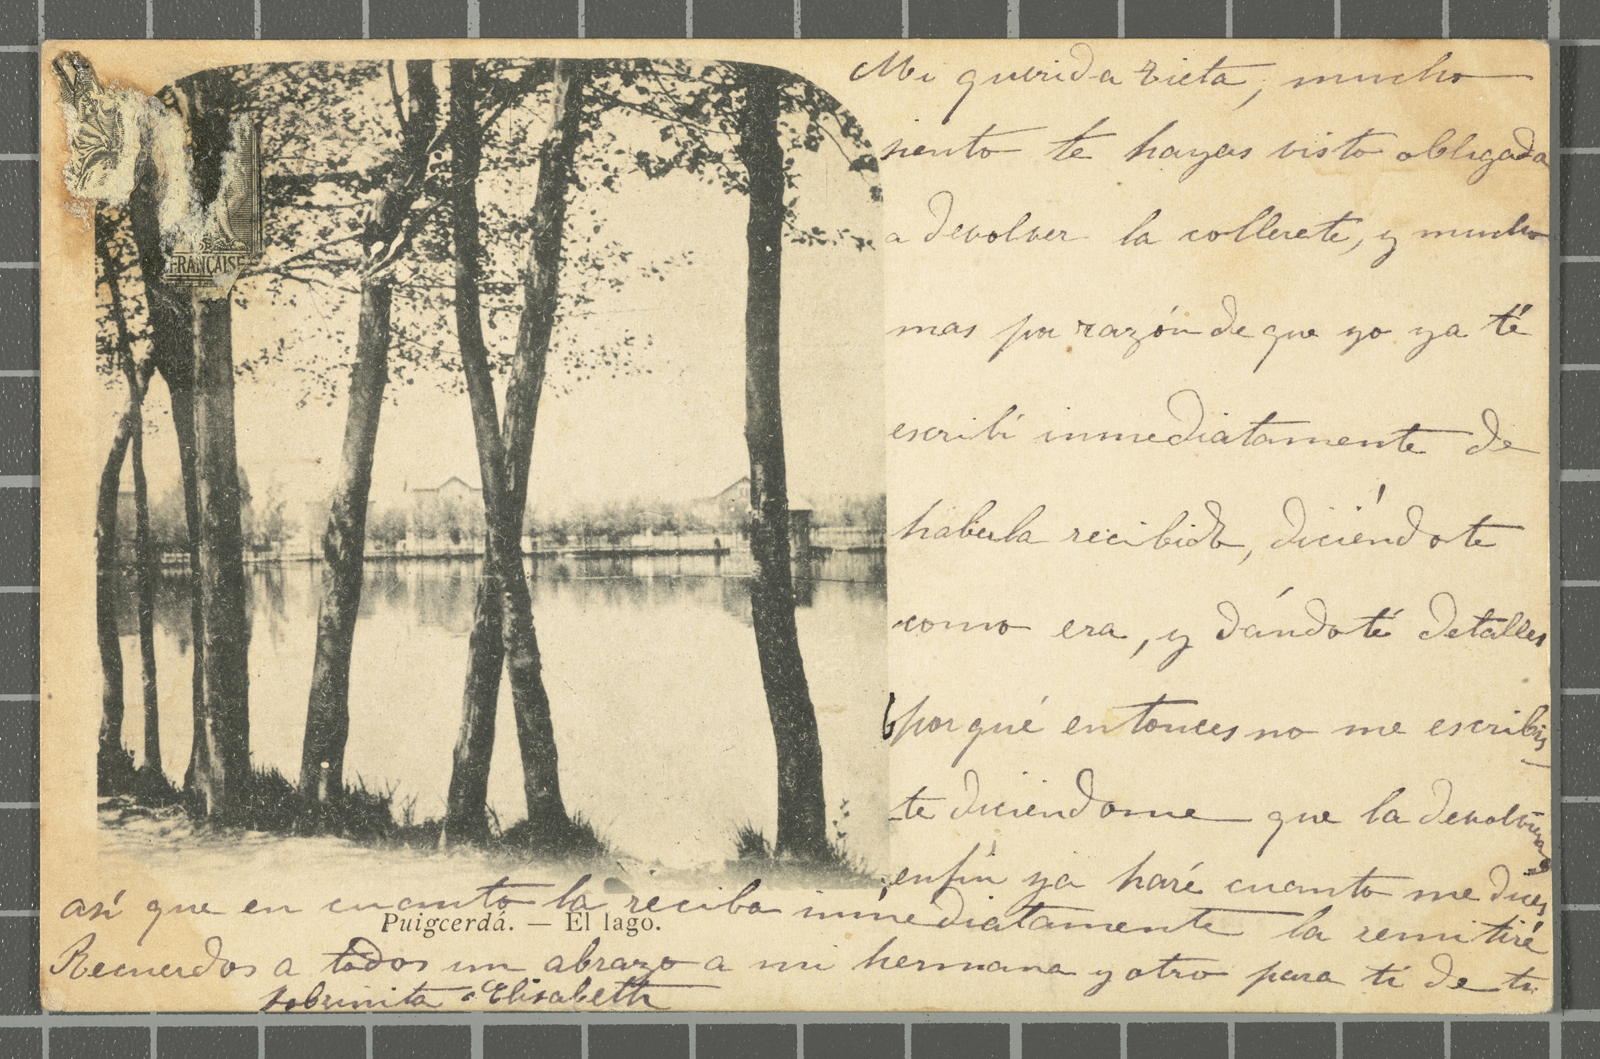 Mi querida tieta, mucho
siento te hayas visto obligada
a devolver la collerete, y mucho
mas por razón de que yo ya té
escribí inmediatamente de
haberla recibido, diciéndote
como era, y dándoté detalles
porqué entonces no me escribis
te diciéndome que la devolviera?
enfín ya haré cuanto me dices
así que en cuanto la reciba inmediatamente la remitiré
Puigcerdá. — El lago.
Recuerdos a todos un abrazo a mi hermana y otro para tí de tu
sobrinita Elisabeth
FRANÇAISE